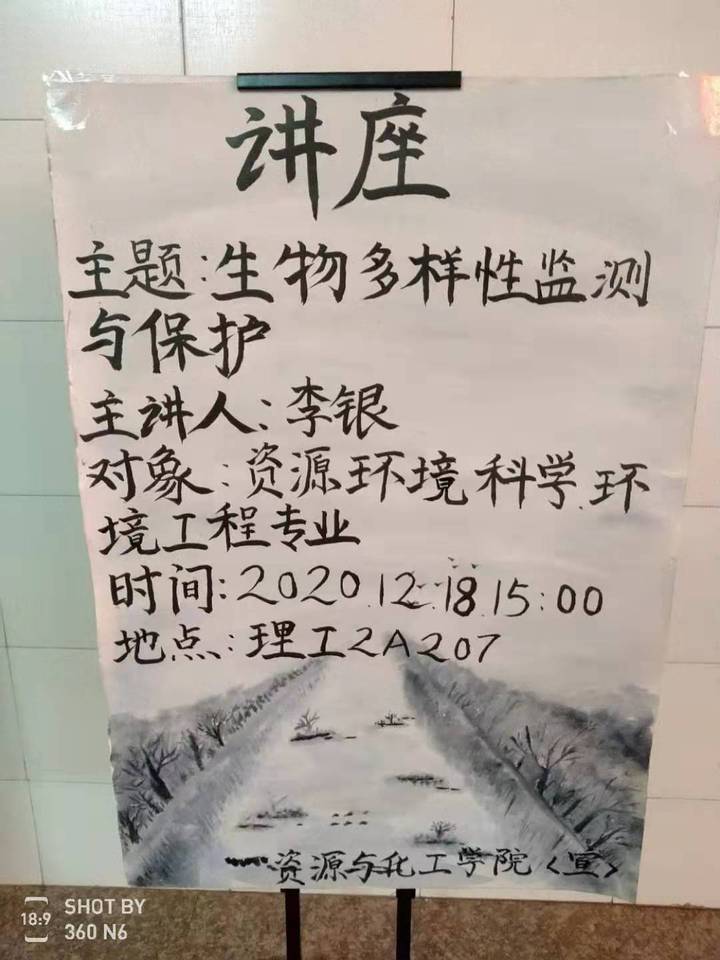 讲座
主题:生物多样性监测
与保护
主讲人:李银
对象:资源环境科学、环
境工程专业
时间:2020.12.18.15:00
地点:理工2A207
资源与化工学院<宣>
18:9
SHOT BY
360 N6